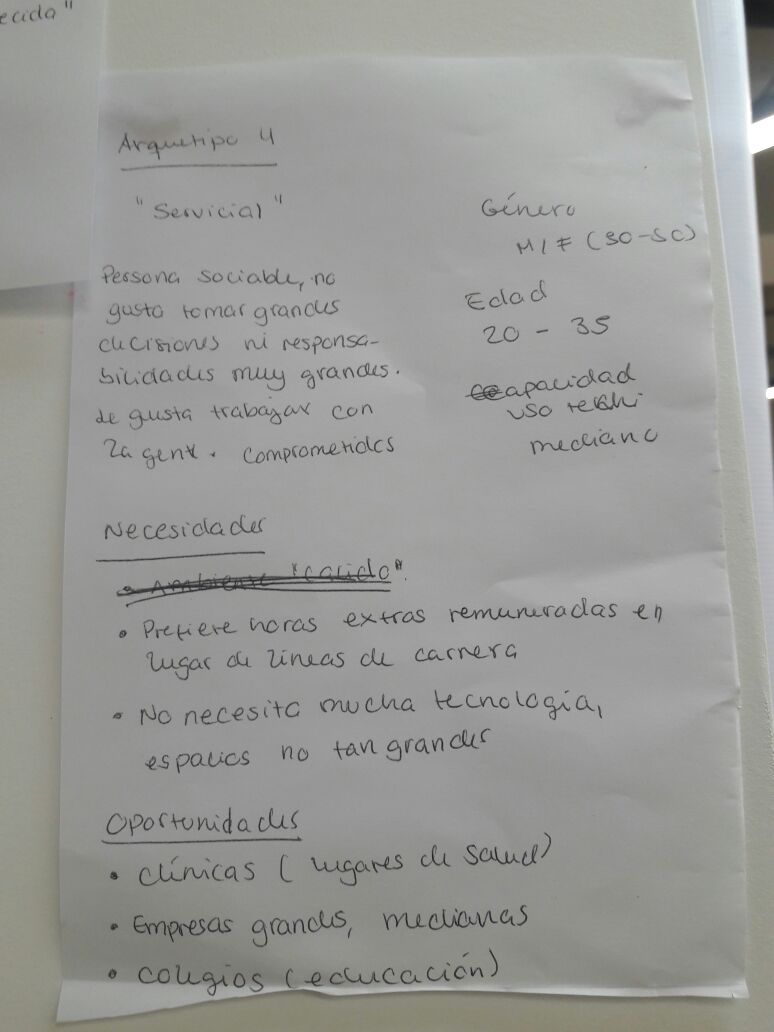 ecida"
Arquetipo 4
"Servicial"
Persona sociable, no
gusta tomar grandes
decisiones ni responsa-
bilidades muy grandes.
Le gusta trabajar con
la gente. comprometidos
Género
M/F (50-50)
Edad
20 - 35
capacidad
uso
mediano
Necesidades
• Ambiente "calido".
• Prefiere horas extras remuneradas en
lugar de lineas de carrera
• No necesita mucha tecnología,
espacios no tan grandes
Oportunidades
• clínicas (lugares de salud)
• Empresas grandes, medianas
• colegios (educación)